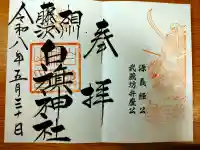 奉拝
源義経公
武蔵坊弁慶公
相州
藤沢
白旗神社
令和八年五月三十日